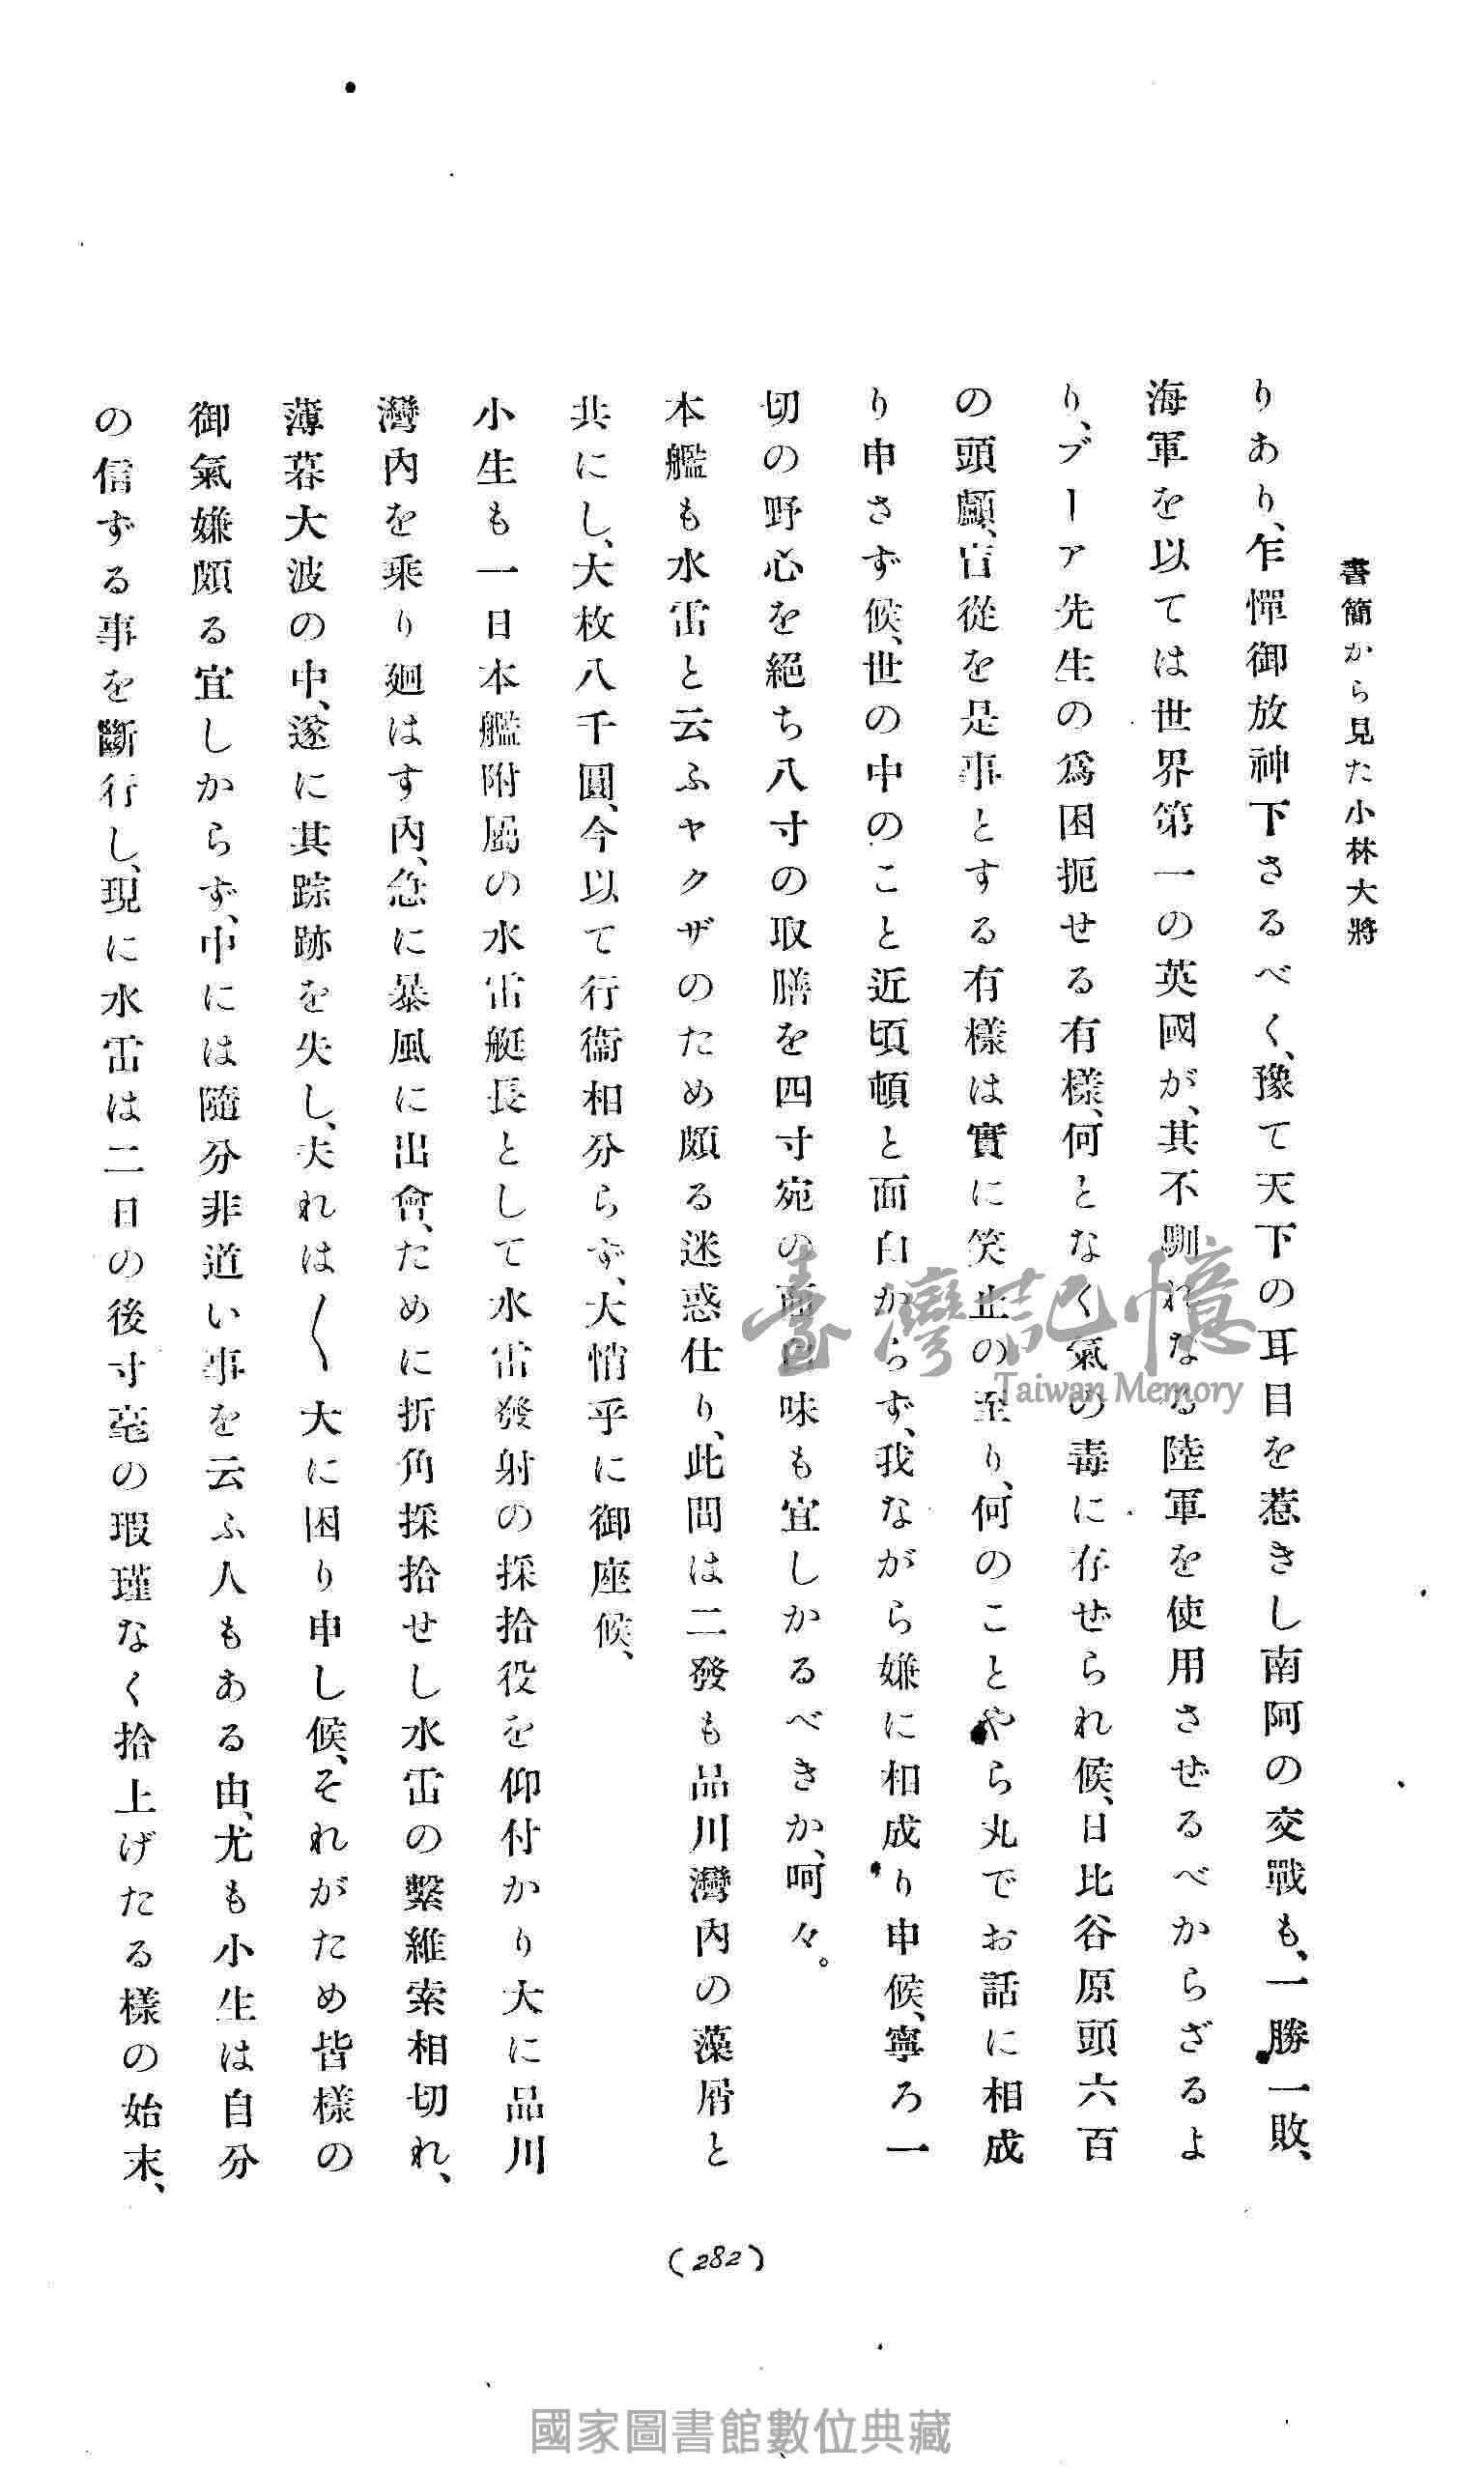 書簡から見た小林大將
りあり、乍憚御放神下さるべく、豫て天下の耳目を惹きし南阿の交戰も、一勝一敗、
海軍を以ては世界第一の英國が、其不馴れなる陸軍を使用させるべからざるよ
り、ブーア先生の爲困扼せる有樣、何となく氣の毒に存ぜられ候、日比谷原頭六百
の頭顱、盲從を是事とする有樣は實に笑止の至り、何のことやら丸でお話に相成
り申さず候、世の中のこと近頃頓と面白からず、我ながら嫌に相成り申候、寧ろ一
切の野心を絕ち八寸の取膳を四寸宛の面白味も宜しかるべきか、呵々。
本艦も水雷と云ふヤクザのため頗る迷惑仕り、此間は二發も品川灣內の藻屑と
共にし、大枚八千圓、今以て行衞相分らず、大悄乎に御座候、
小生も一日本艦附屬の水雷艇長として水雷發射の採拾役を仰付かり大に品川
灣內を乘り廻はす內、急に暴風に出會、ために折角採拾せし水雷の繫維索相切れ、
薄暮大波の中、遂に其踪跡を失し、夫れは〱大に困り申し候、それがため皆樣の
御氣嫌頗る宜しからず、中には隨分非道い事を云ふ人もある由、尤も小生は自分
の信ずる事を斷行し、現に水雷は二日の後寸毫の瑕瑾なく拾上げたる樣の始末、
(282)
臺灣記憶
Taiwan Memory
國家圖書館數位典藏